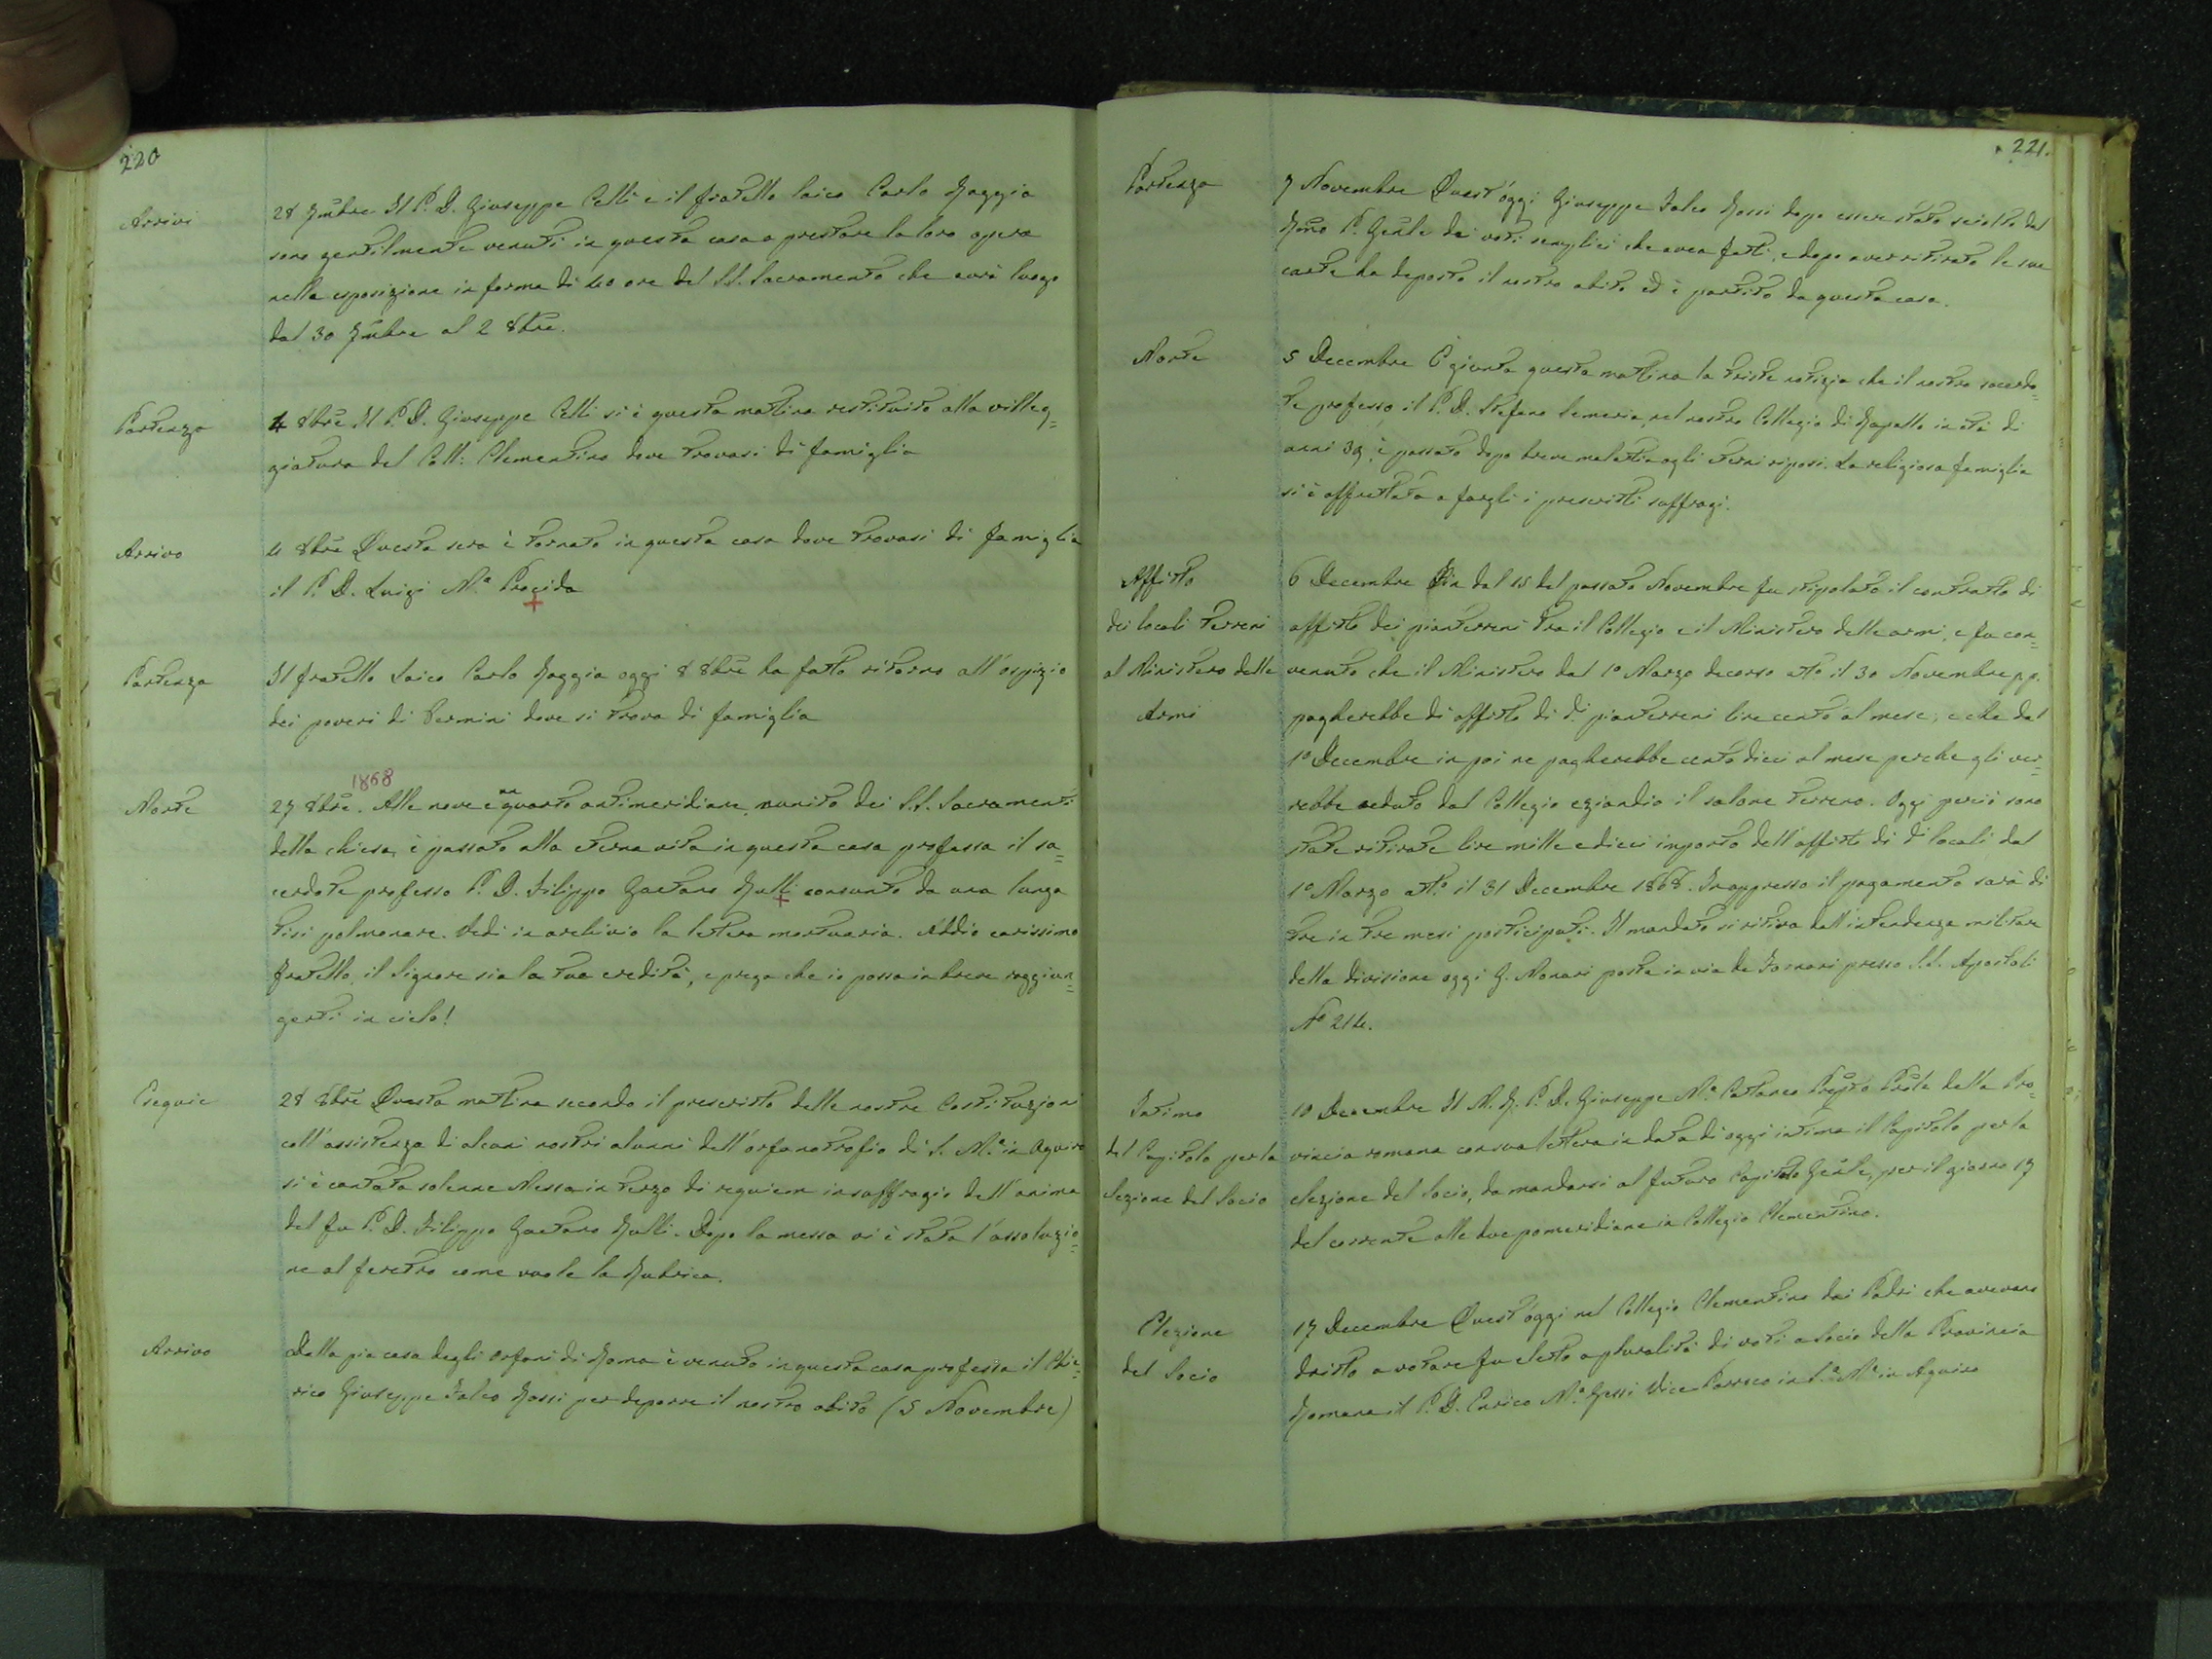 220
Arrivi
28 7mbre Il P. D. Giuseppe Celli e il fratello laico Carlo Raggia
sono gentilmente venuti in questa casa a prestare la loro opera
nella esposizione in forma di 40 ore del SS. Sacramento che avrà luogo
dal 30 7mbre al 2 8bre.
Partenza
4 8bre Il P. D. Giuseppe Celli si è questa mattina restituito alla villeg=
giatura del Coll: Clementino dove trovasi di famiglia
Arrivo
4 8bre Questa sera è tornato in questa casa dove trovasi di famiglia
il P. D. Luigi Mª Procida
+
Partenza
Il fratello Laico Carlo Raggia oggi 8 8bre ha fatto ritorno all'ospizio
dei poveri di Termini dove si trova di famiglia
1868
Morte
27 8bre. Alle nove e un quarto antimeridiane, munito dei SS. Sacramenti
della chiesa, è passato alla eterna vita in questa casa professa il sa=
cerdote professo P. D. Filippo Gaetano Rulli consunto da una lunga
+
tisi polmonare. Vedi in archivio la lettera mortuaria. Addio carissimo
fratello, il Signore sia la tua eredità, e prega che io possa in breve raggiun=
gerti in cielo!
Esequie
28 8bre Questa mattina secondo il prescritto delle nostre Costituzioni
coll'assistenza di alcuni nostri alunni dell'orfanotrofio di S. Mª in Aquiro
si è cantata solenne Messa in terzo di requiem in suffragio dell'anima
del fu P. D. Filippo Gaetano Rulli. Dopo la messa vi è stata l'assoluzio=
ne al feretro come vuole la Rubrica.
Arrivo
Dalla pia casa degli orfani di Roma è venuto in questa casa professa il Chie=
rico Giuseppe Falco Rossi per deporre il nostro abito (5 Novembre)
221.
Partenza
7 Novembre Quest'oggi Giuseppe Falco Rossi dopo esser stato sciolto dal
Rmo P. Genle dei voti semplici che avea fatti, e dopo aver ritirato le sue
carte ha deposto il nostro abito ed è partito da questa casa.
Morte
5 Decembre È giunta questa mattina la triste notizia che il nostro sacerdo=
te professo il P. D. Stefano Semeria, nel nostro Collegio di Rapallo in età di
anni 39, è passato dopo breve malattia agli eterni riposi. La religiosa famiglia
si è affrettata a fargli i prescritti suffragi.
Affitto
dei locali terreni
al Ministero delle
Armi
6 Decembre Fin dal 15 del passato Novembre fu stipolato il contratto di
affitto dei pianterreni tra il Collegio e il Ministero delle armi, e fu con=
venuto che il Ministero dal 1º Marzo decorso atto il 30 Novembre p.p.
pagherebbe di affitto di di pianterreni lire cento al mese, e che dal
1º Decembre in poi ne pagherebbe cento dieci al mese perche gli ver=
rebbe ceduto dal Collegio eziandio il salone terreno. Oggi perciò sono
state ritirate lire mille e dieci importo dell'affitto di di locali dal
1º Marzo atto il 31 Decembre 1868. Inappresso il pagamento sarà di
tre in tre mesi posticipati. Il mandato si ritira dall'intendenza militare
della divisione oggi G. Monari posta in via de Fornari presso SS. Apostoli
Nº 214.
Intimo
del Capitolo per la
elezione del Socio
10 Decembre Il M. R. P. D. Giuseppe Mª Cattaneo Prepto Prole della Pro=
vincia romana con sua lettera in data di oggi intima il Capitolo per la
elezione del Socio, da mandarsi al futuro Capitolo Genle, per il giorno 17
del corrente alle due pomeridiane in Collegio Clementino.
Elezione
del Socio
17 Decembre Quest'oggi nel Collegio Clementino dai Padri che avevano
dritto a votare fu eletto a pluralità di voti a Socio della Provincia
Romana il P. D. Enrico Mª Gessi Vice Parroco in Sª Mª in Aquiro